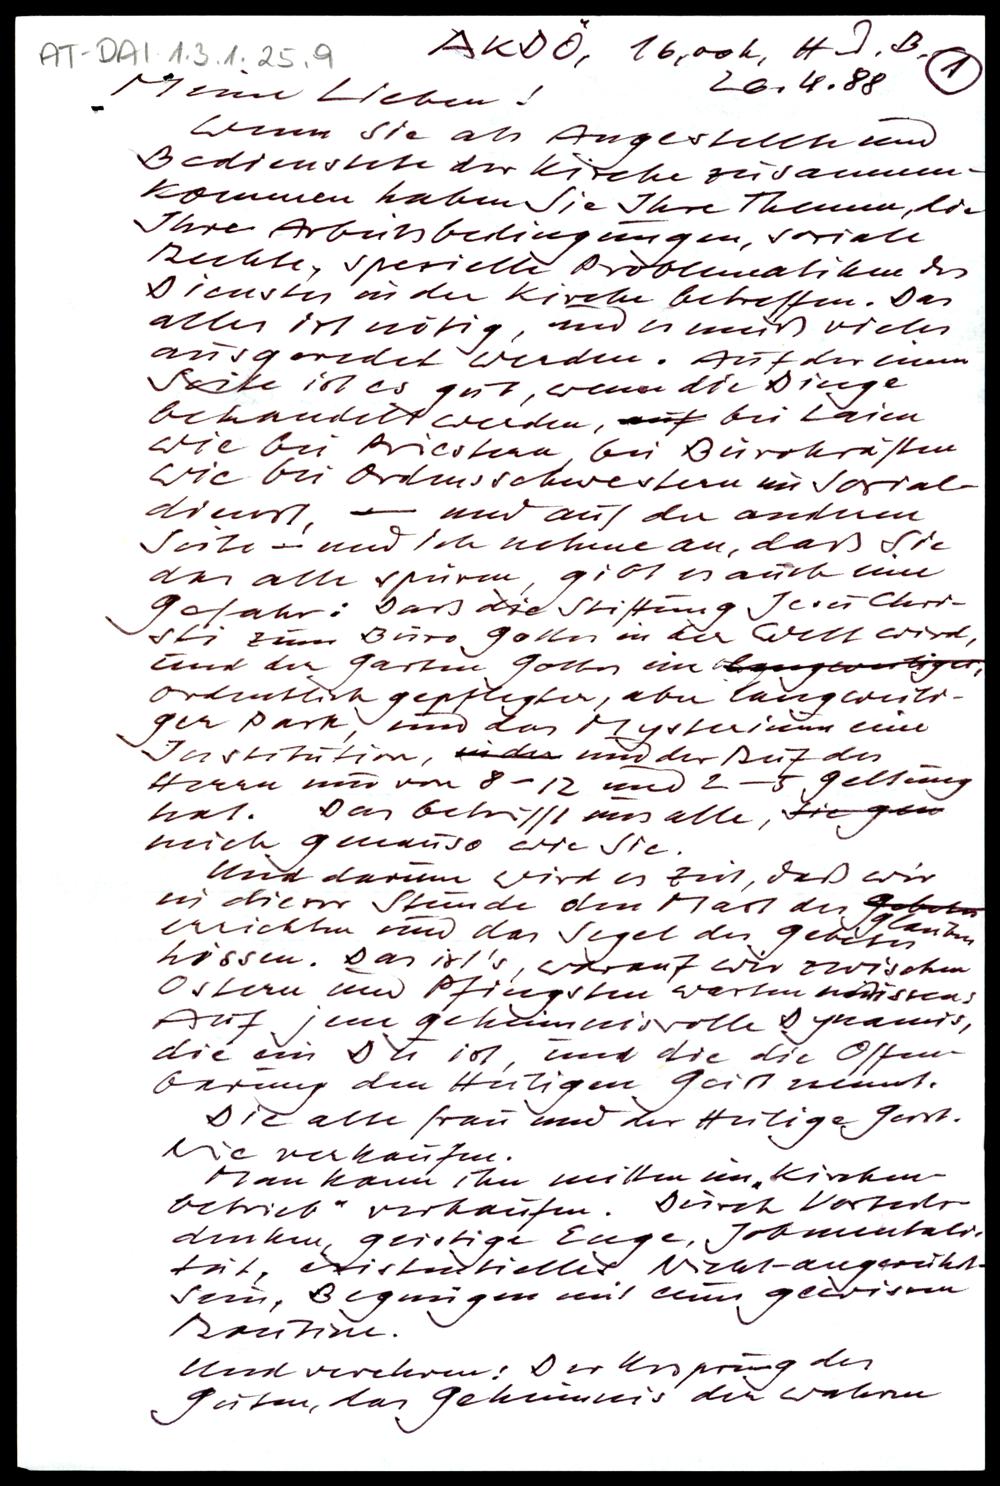 AT-DAI 1.3.1.25.9
AKDÖ, 16,ooh, H J. B. 1
20.4.88
Meine Lieben!
Wenn Sie als Angestellte und
Bedienstete der Kirche zusammen-
kommen haben Sie Ihre Themen, die
Ihre Arbeitsbedingungen, soziale
Rechte, spezielle Problematiken des
Dienstes in der Kirche betreffen. Das
alles ist nötig, und es muß vieles
ausgeredet werden. Auf der einen
Seite ist es gut, wenn die Dinge
behandelt werden, auf bei Laien
wie bei Priestern, bei Bürokräften
wie bei Ordensschwestern im Sozial-
dienst, — und auf der anderen
Seite – und ich nehme an, daß Sie
das alle spüren, gibt es auch eine
Gefahr: Daß die Stiftung Jesu Chri-
sti zum Büro Gottes in der Welt wird,
und der Garten Gottes ein langweiliger,
ordentlich gepflegter, aber langweili-
ger Park, und das Mysterium eine
Institution, in der und der Ruf des
Herrn nur von 8–12 und 2–5 Geltung
hat. Das betrifft uns alle, Sie gen
mich genauso wie Sie.
Und darum wird es Zeit, daß wir
in dieser Stunde den Mast des Gebetes
Glaubens
errichten und das Segel des Gebetes
hissen. Das ist's, worauf wir zwischen
Ostern und Pfingsten warten müssen:
Auf jene geheimnisvolle Dynamis,
die ein Du ist, und die die Offen-
barung den Heiligen Geist nennt.
Die alte Frau und der Heilige Geist.
Nie verkaufen.
Man kann ihn mitten im „Kirchen-
betrieb“ verkaufen. Durch Vorteils-
denken, geistige Enge, Jobmentali-
tät, existentielles Nicht-angerührt-
Sein, Begnügen mit einer gewissen
Routine.
Und verehren: Der Ursprung des
Guten, das Geheimnis der wahren